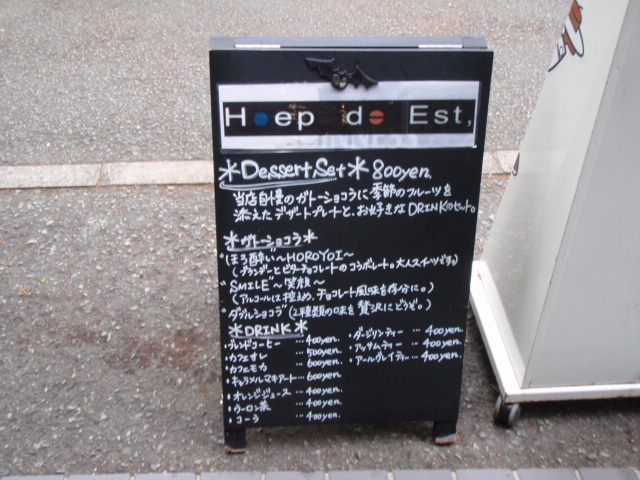 Hoep do Est,
*Dessert Set* 800yen.
当店自慢のガトーショコラに季節のフルーツを
添えたデザートプレートと、お好きなDRINKのセット。
*ガトーショコラ*
"ほろ酔い～HOROYOI～
(ブランデーとビターチョコレートのコラボレート。大人スイーツです。)
"SMILE"～笑顔～
(アルコールは控えめ、チョコレート風味を存分に。)
"ダブルショコラ"(2種類の味を贅沢にどうぞ。)
*DRINK*
・ブレンドコーヒー …400yen.
・カフェオレ …500yen.
・カフェモカ …600yen.
・キャラメルマキアート…600yen.
・オレンジジュース …400yen.
・ウーロン茶 …400yen.
・コーラ …400yen.
・ダージリンティー … 400yen.
・アッサムティー … 400yen.
・アールグレイティー … 400yen.